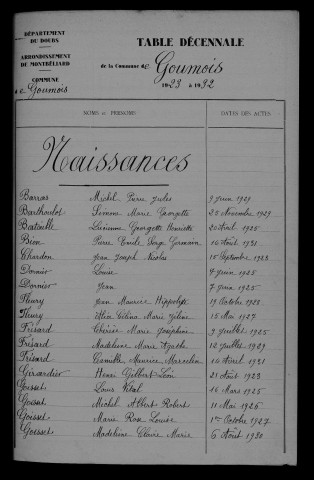 DÉPARTEMENT
DU DOUBS
ARRONDISSEMENT
DE MONTBÉLIARD
COMMUNE
de Goumois
TABLE DÉCENNALE
de la Commune de Goumois
1923 à 1932
NOMS et PRÉNOMS
DATES DES ACTES
Naissances
Barras Michel Pierre Jules 9 Juin 1929
Barthoulot Simone Marie Georgette 28 Novembre 1929
Georgette Henriette 20 Avril 1925
Bion Pierre Emile Serge Germain 10 Août 1931
Chardon Jean Joseph Nicolas 15 Septembre 1923
Dornier Louise 4 Juin 1925
Dornier Jean 7 Juin 1925
Fleury Jean Maurice Hippolyte 19 Octobre 1925
Fleury Célina Marie 15 Mai 1927
Frésard Thérèse Marie Joséphine 9 Juillet 1925
Frésard Madeleine Marie Agathe 12 Juillet 1929
Frésard Camille Maurice Marcelin 14 Avril 1931
Girardier Henri Gilbert Léon 21 Août 1923
Goisset Louis Vital 16 Mars 1925
Goisset Michel Albert Robert 11 Mai 1926
Goisset Marie Rose Louise 1er Octobre 1927
Goisset Madeleine Claire Marie 6 Août 1930